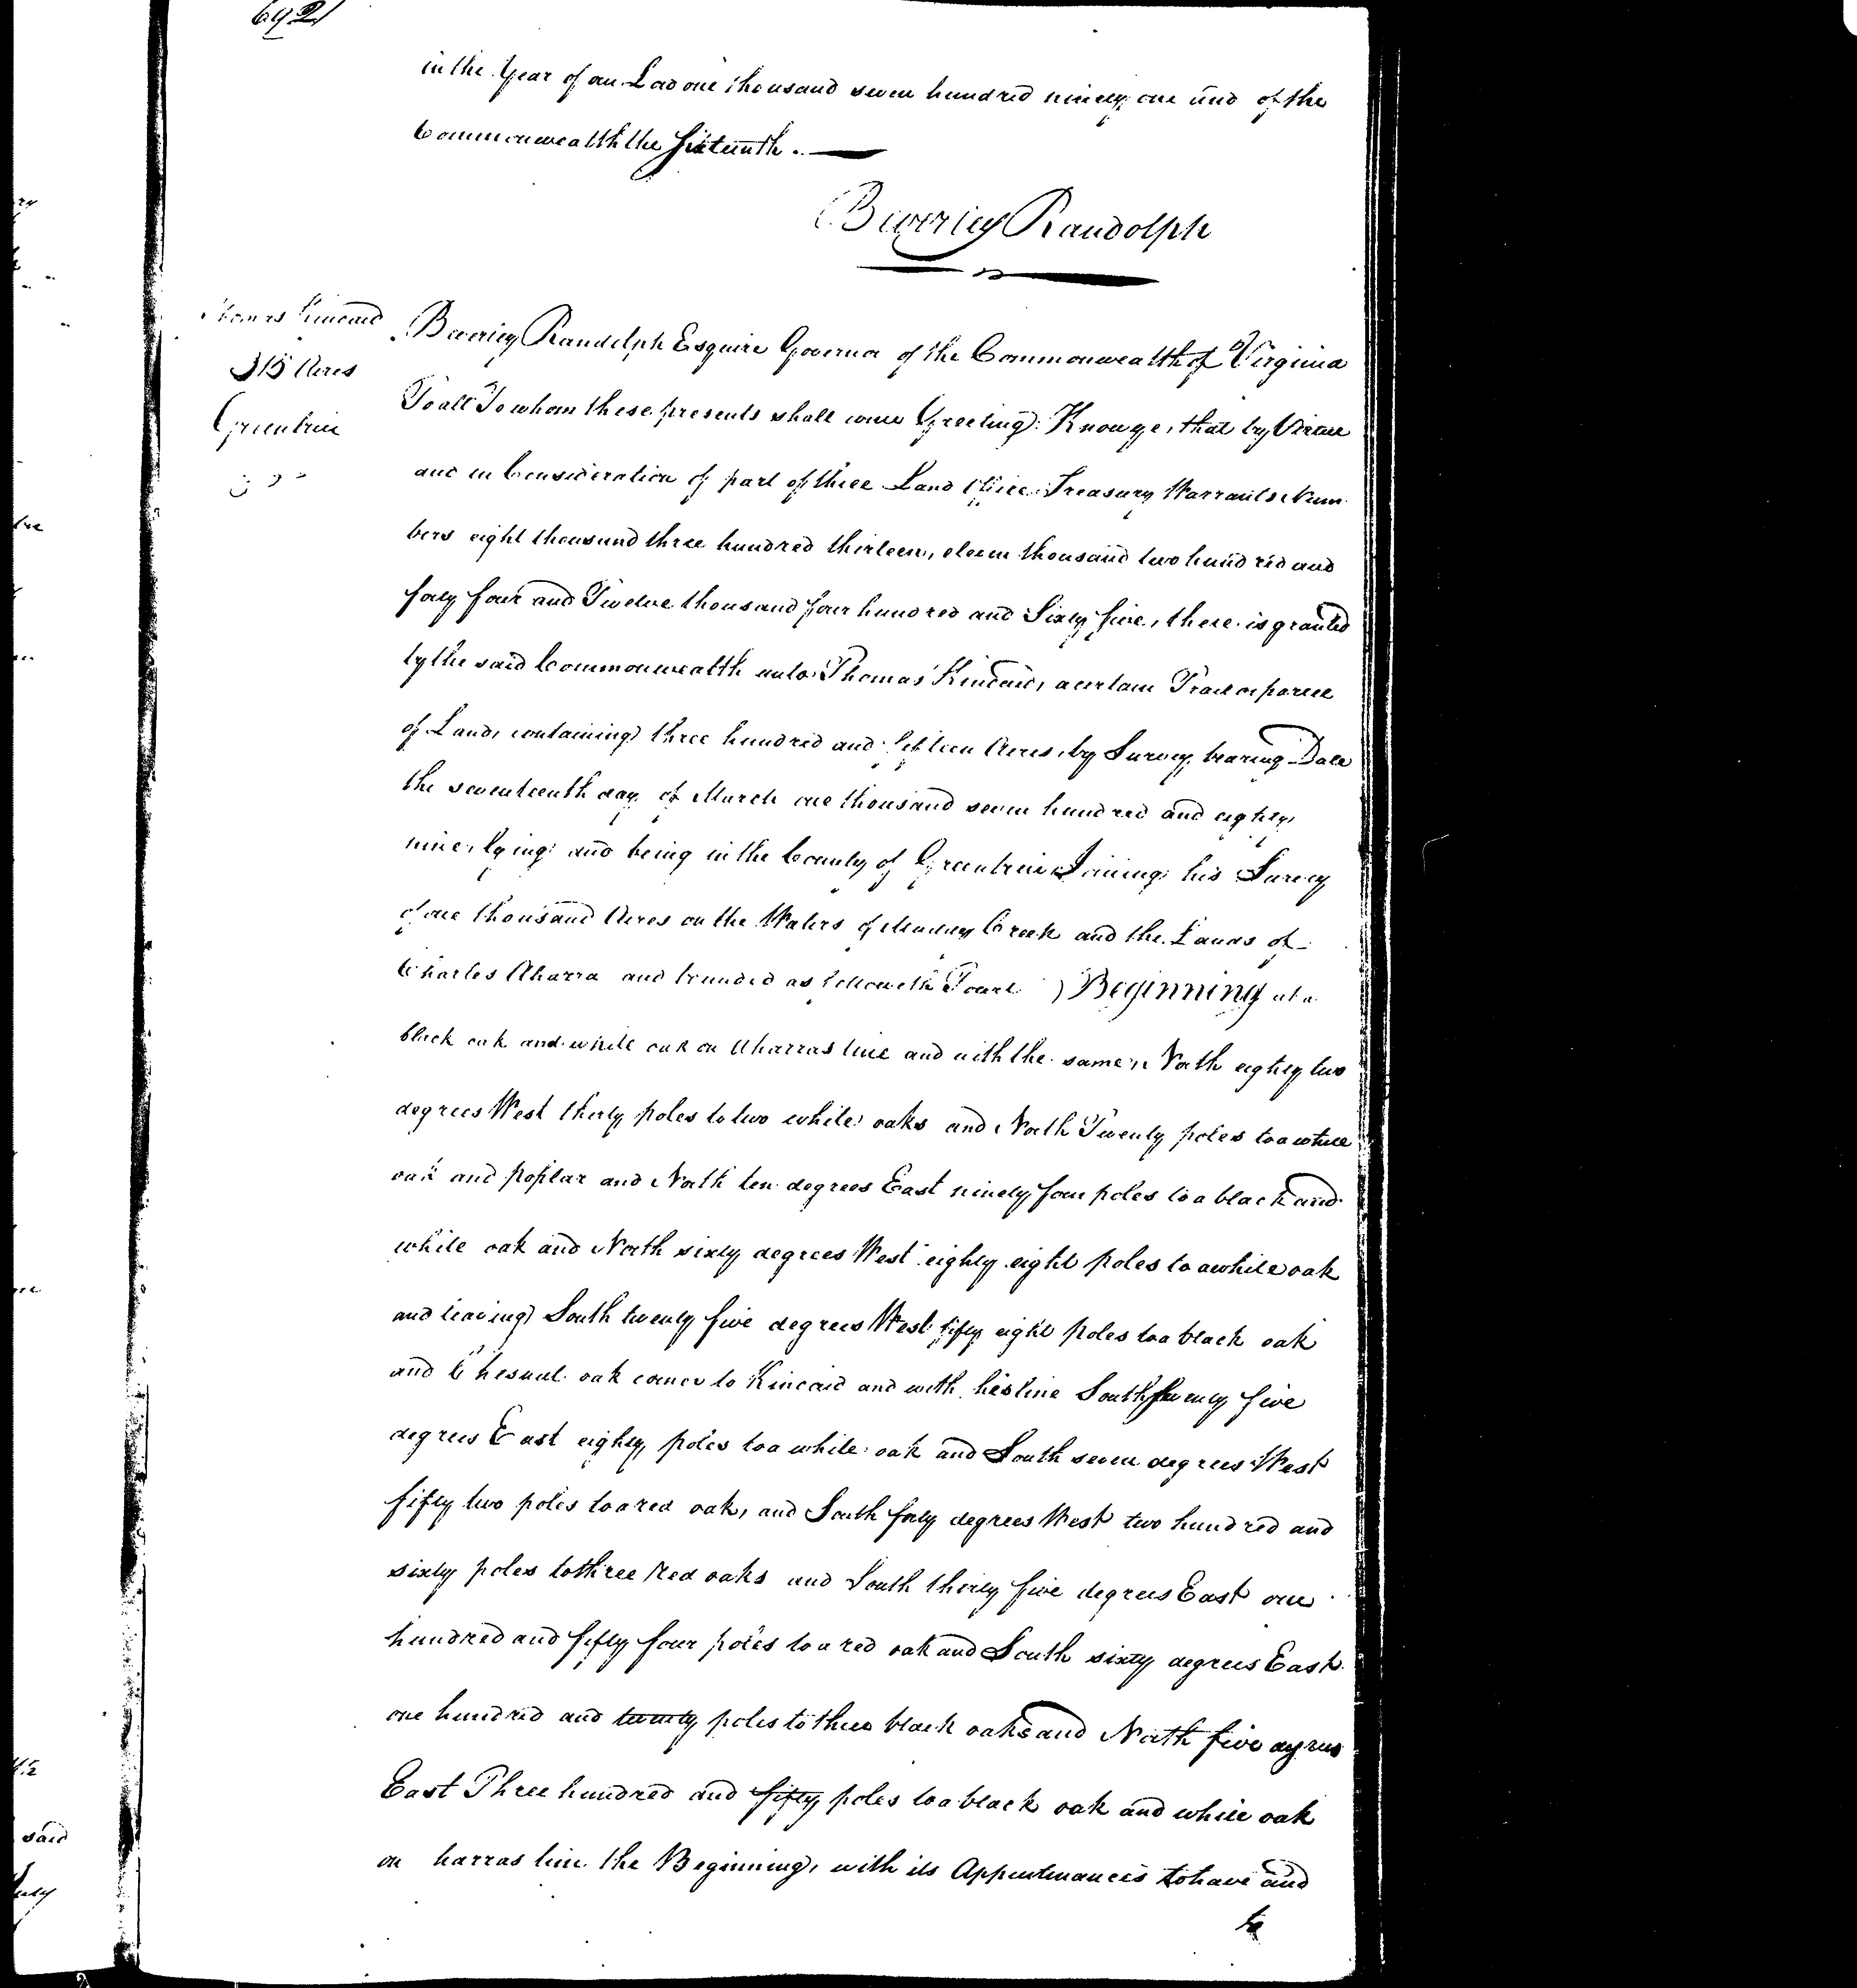 692
in the Year of our Lord one thousand seven hundred ninety one and of the
Commonwealth the Sixteenth .—
Beverley Randolph
Thomas Kincaid
315 Acres
Greenbrier
Beverley Randolph Esquire Governor of the Commonwealth of Virginia
To all To whom these presents shall come Greeting: Know ye, that by Virtue
and in Consideration of part of three Land Office Treasury Warrants Num
bers eight thousand three hundred thirteen, eleven thousand two hundred and
forty four and Twelve thousand four hundred and Sixty five, there is granted
by the said Commonwealth unto Thomas Kincaid, a certain Tract or parcel
of Land, containing three hundred and fifteen Acres, by Survey, bearing Date
the seventeenth day of March one thousand seven hundred and eighty
nine, lying and being in the County of Greenbrier Joining his Survey
of one thousand Acres on the Waters of Muddy Creek and the Lands of
Charles Aharra and bounded as followeth Towit ) Beginning at a
black oak and white oak on Aharras line and with the same, North eighty two
degrees West thirty poles to two white oaks and North Twenty poles to a white
oak and poplar and North ten degrees East ninety four poles to a black and
white oak and North sixty degrees West eighty eight poles to a white oak
and leaving South twenty five degrees West fifty eight poles to a black oak
and Chesnut oak corner to Kincaid and with his line South twenty five
degrees East eighty poles to a white oak and South seven degrees West
fifty two poles to a red oak, and South forty degrees West two hundred and
sixty poles to three red oaks and South thirty five degrees East one
hundred and fifty four poles to a red oak and South sixty degrees East
one hundred and twenty poles to three black oaks and North five degrees
East Three hundred and fifty poles to a black oak and white oak
on harras line the Beginning, with its Appurtenances to have and
to
said
July